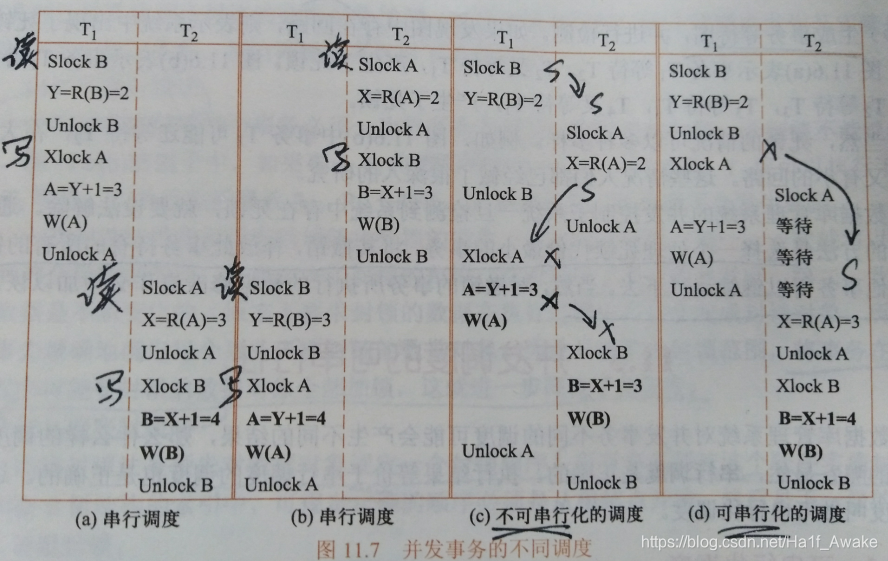 T₁ T₂ T₁ T₂ T₁ T₂ T₁ T₂
读 Slock B 读 Slock A Slock B S Slock B
Y=R(B)=2 X=R(A)=2 Y=R(B)=2 S Y=R(B)=2
Unlock B Unlock A Slock A Unlock B
写 Xlock A 写 Xlock B X=R(A)=2 Xlock A X
A=Y+1=3 B=X+1=3 Unlock B S Slock A
W(A) W(B) Unlock A A=Y+1=3 等待
Unlock A Unlock B Xlock A X W(A) 等待
读 Slock A 读 Slock B A=Y+1=3 X Unlock A 等待 S
X=R(A)=3 Y=R(B)=3 W(A) X X=R(A)=3
Unlock A Unlock B Xlock B Unlock A
写 Xlock B 写 Xlock A B=X+1=3 Xlock B
B=X+1=4 A=Y+1=4 W(B) B=X+1=4
W(B) W(A) Unlock A W(B)
Unlock B Unlock A Unlock B Unlock B
(a) 串行调度 (b) 串行调度 (c) 不可串行化的调度 (d) 可串行化的调度
图 11.7 并发事务的不同调度
https://blog.csdn.net/Ha1f_Awake